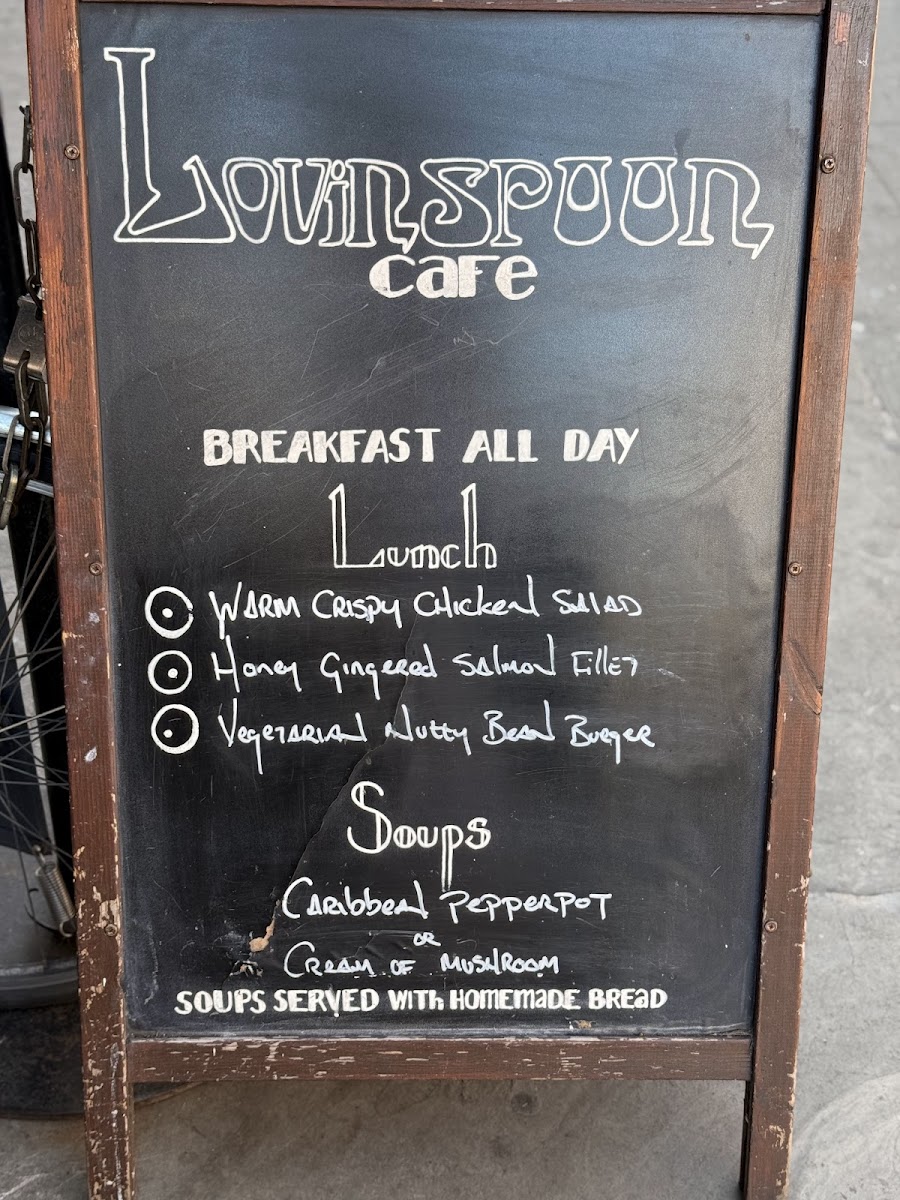 Lovinspoon
cafe
BREAKFAST ALL DAY
Lunch
WARM CRISPY CHICKEN SALAD
Honey Gingered Salmon Fillet
Vegetarian Nutty Bean Burger
Soups
Caribbean Pepperpot
OR
Cream of Mushroom
SOUPS SERVED WITH HOMEMADE BREAD